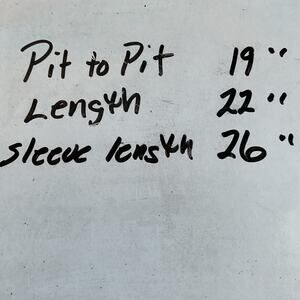 Pit to Pit 19"
Length 22"
Sleeve length 26"